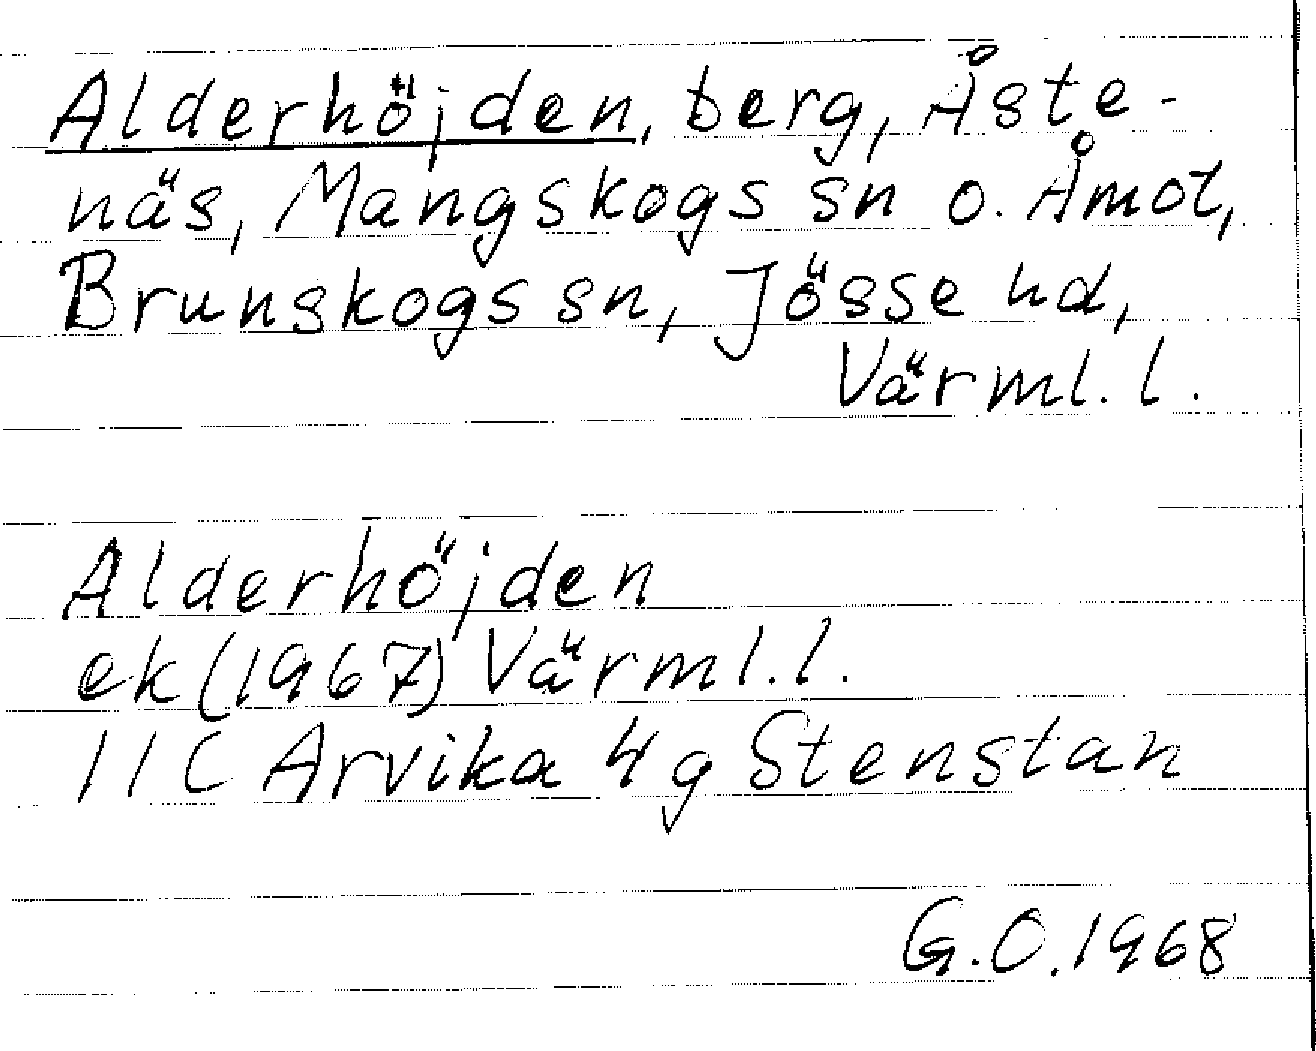 Alderhöjden, berg, Åste-
näs, Mangskogs sn o. Åmot,
Brunskogs sn, Jösse hd,
Värml. l.
Alderhöjden
ek (1967) Värml. l.
11C Arvika 4g Stenstan
G.O. 1968